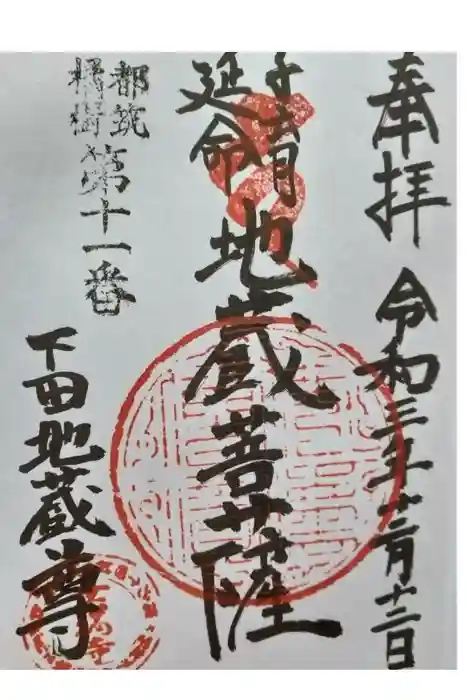 奉拝 令和三年十二月十二日
子育
延命
地蔵菩薩
都筑
橘樹
第十一番
下田地蔵尊